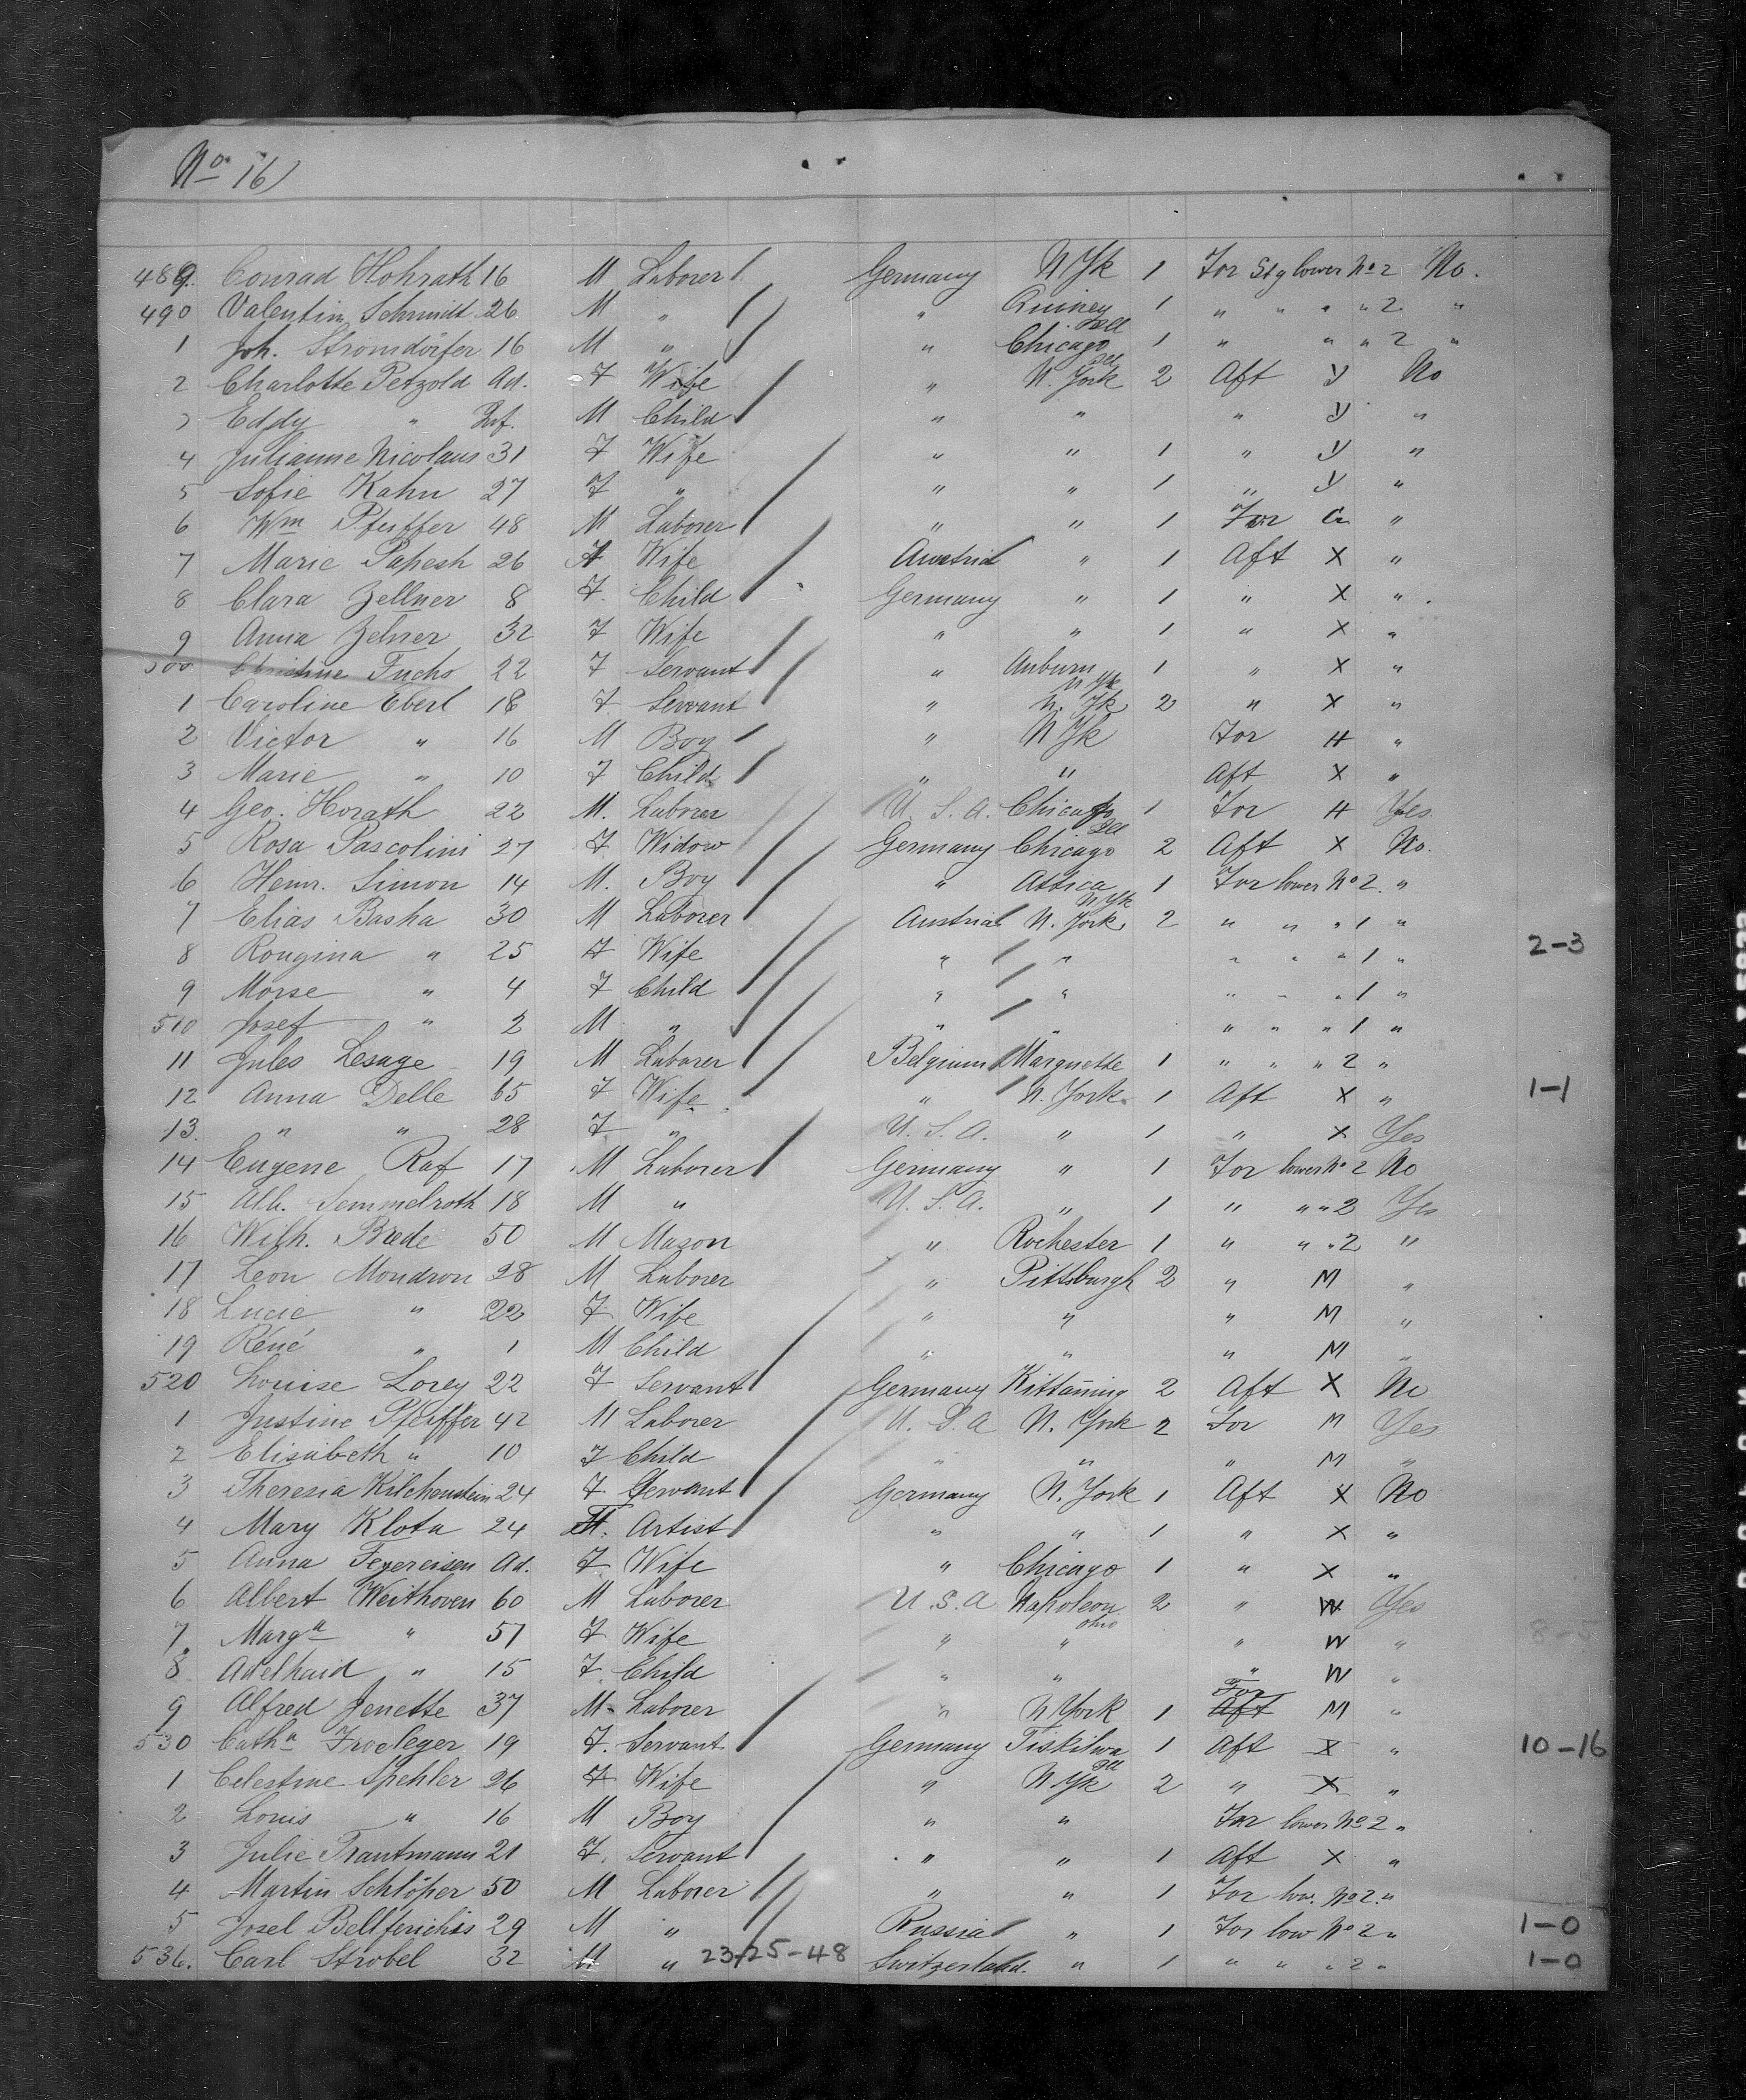 No 16)
489. Conrad Hohrath 16 M Laborer Germany N Yk 1 For Stg lower No 2 No.
490 Valentin Schmidt 26 M " " Quincy Ill 1 " " " " 2 "
1 Joh. Stromdörfer 16 M " " Chicago Ill 1 " " " 2 "
2 Charlotte Petzold Ad. F Wife " N. York 2 Aft Y No
3 Eddy " Inf. M Child " " " Y "
4 Julianne Nicolaus 31 F Wife " " 1 " Y "
5 Sofie Kahn 27 F " " " 1 " Y "
6 Wm Pfeiffer 48 M Laborer " " 1 For G "
7 Marie Papesh 26 F Wife Austria " 1 Aft X "
8 Clara Zellner 8 F. Child Germany " 1 " X "
9 Anna Zelner 32 F Wife " " 1 " X "
500 Christine Fuchs 22 F Servant " Auburn N Yk 1 " X "
1 Caroline Eberl 18 F Servant " N. Yk 2 " X "
2 Victor " 16 M Boy " N Yk For H "
3 Marie " 10 F Child " " Aft X "
4 Geo. Horath 22 M. Laborer U. S. A. Chicago Ill 1 For H Yes
5 Rosa Pascolini 27 F Widow Germany Chicago 2 Aft X No.
6 Henr. Simon 14 M. Boy " Attica N Yk 1 For lower No 2 "
7 Elias Basha 30 M Laborer Austria N. York 2 " " " 1 "
8 Rougina " 25 F Wife " " " " " 1 " 2-3
9 Morse " 4 F Child " " " " " 1 "
510 Josef " 2 M " " " " " " 1 "
11 Jules Lesage 19 M Laborer Belgium Marquette 1 " " " 2 "
12 Anna Delle 65 F Wife " N. York 1 Aft X " 1-1
13. " " 28 F " U. S. A. " 1 " X Yes
14 Eugene Raf 17 M Laborer Germany " 1 For lower No 2 No
15 Alb. Semmelroth 18 M " U. S. A. " 1 " " " 2 Yes
16 Wilh. Brede 50 M Mason " Rochester 1 " " " 2 "
17 Leon Mondron 28 M Laborer " Pittsburgh 2 " M "
18 Lucie " 22 F Wife " " " M "
19 René " 1 M Child " " " M "
520 Louise Lorey 22 F Servant Germany Kittanning 2 Aft X No
1 Justine Pfeiffer 42 M Laborer U. S. A N. York 2 For M Yes
2 Elisabeth " 10 F Child " " " M "
3 Theresia Kilchenstein 24 F Servant Germany N. York 1 Aft X No
4 Mary Klota 24 F. Artist " " 1 " X "
5 Anna Feyereisen Ad. F Wife " Chicago 1 " X "
6 Albert Weithoven 60 M Laborer U. S. A Napoleon Ohio 2 " W Yes
7 Marga " 57 F Wife " " " W " 8-5
8 Adelhaid " 15 F Child " " " W "
9 Alfred Jenette 37 M Laborer " N York 1 For Aft M "
530 Catha Froeleger 19 F. Servant Germany Tiskilwa Ill 1 Aft X " 10-16
1 Celestine Spehler 26 F Wife " N Yk 2 " X "
2 Louis " 16 M Boy " " For lower No 2 "
3 Julie Trautmann 21 F. Servant " " 1 Aft X "
4 Martin Schlöper 50 M Laborer " " 1 For low. No 2 "
5 Josel 29 M " Russia " 1 For low No 2 " 1-0
536. Carl Strobel 32 M " 23-25-48 Switzerland. " 1 " " " 2 " 1-0